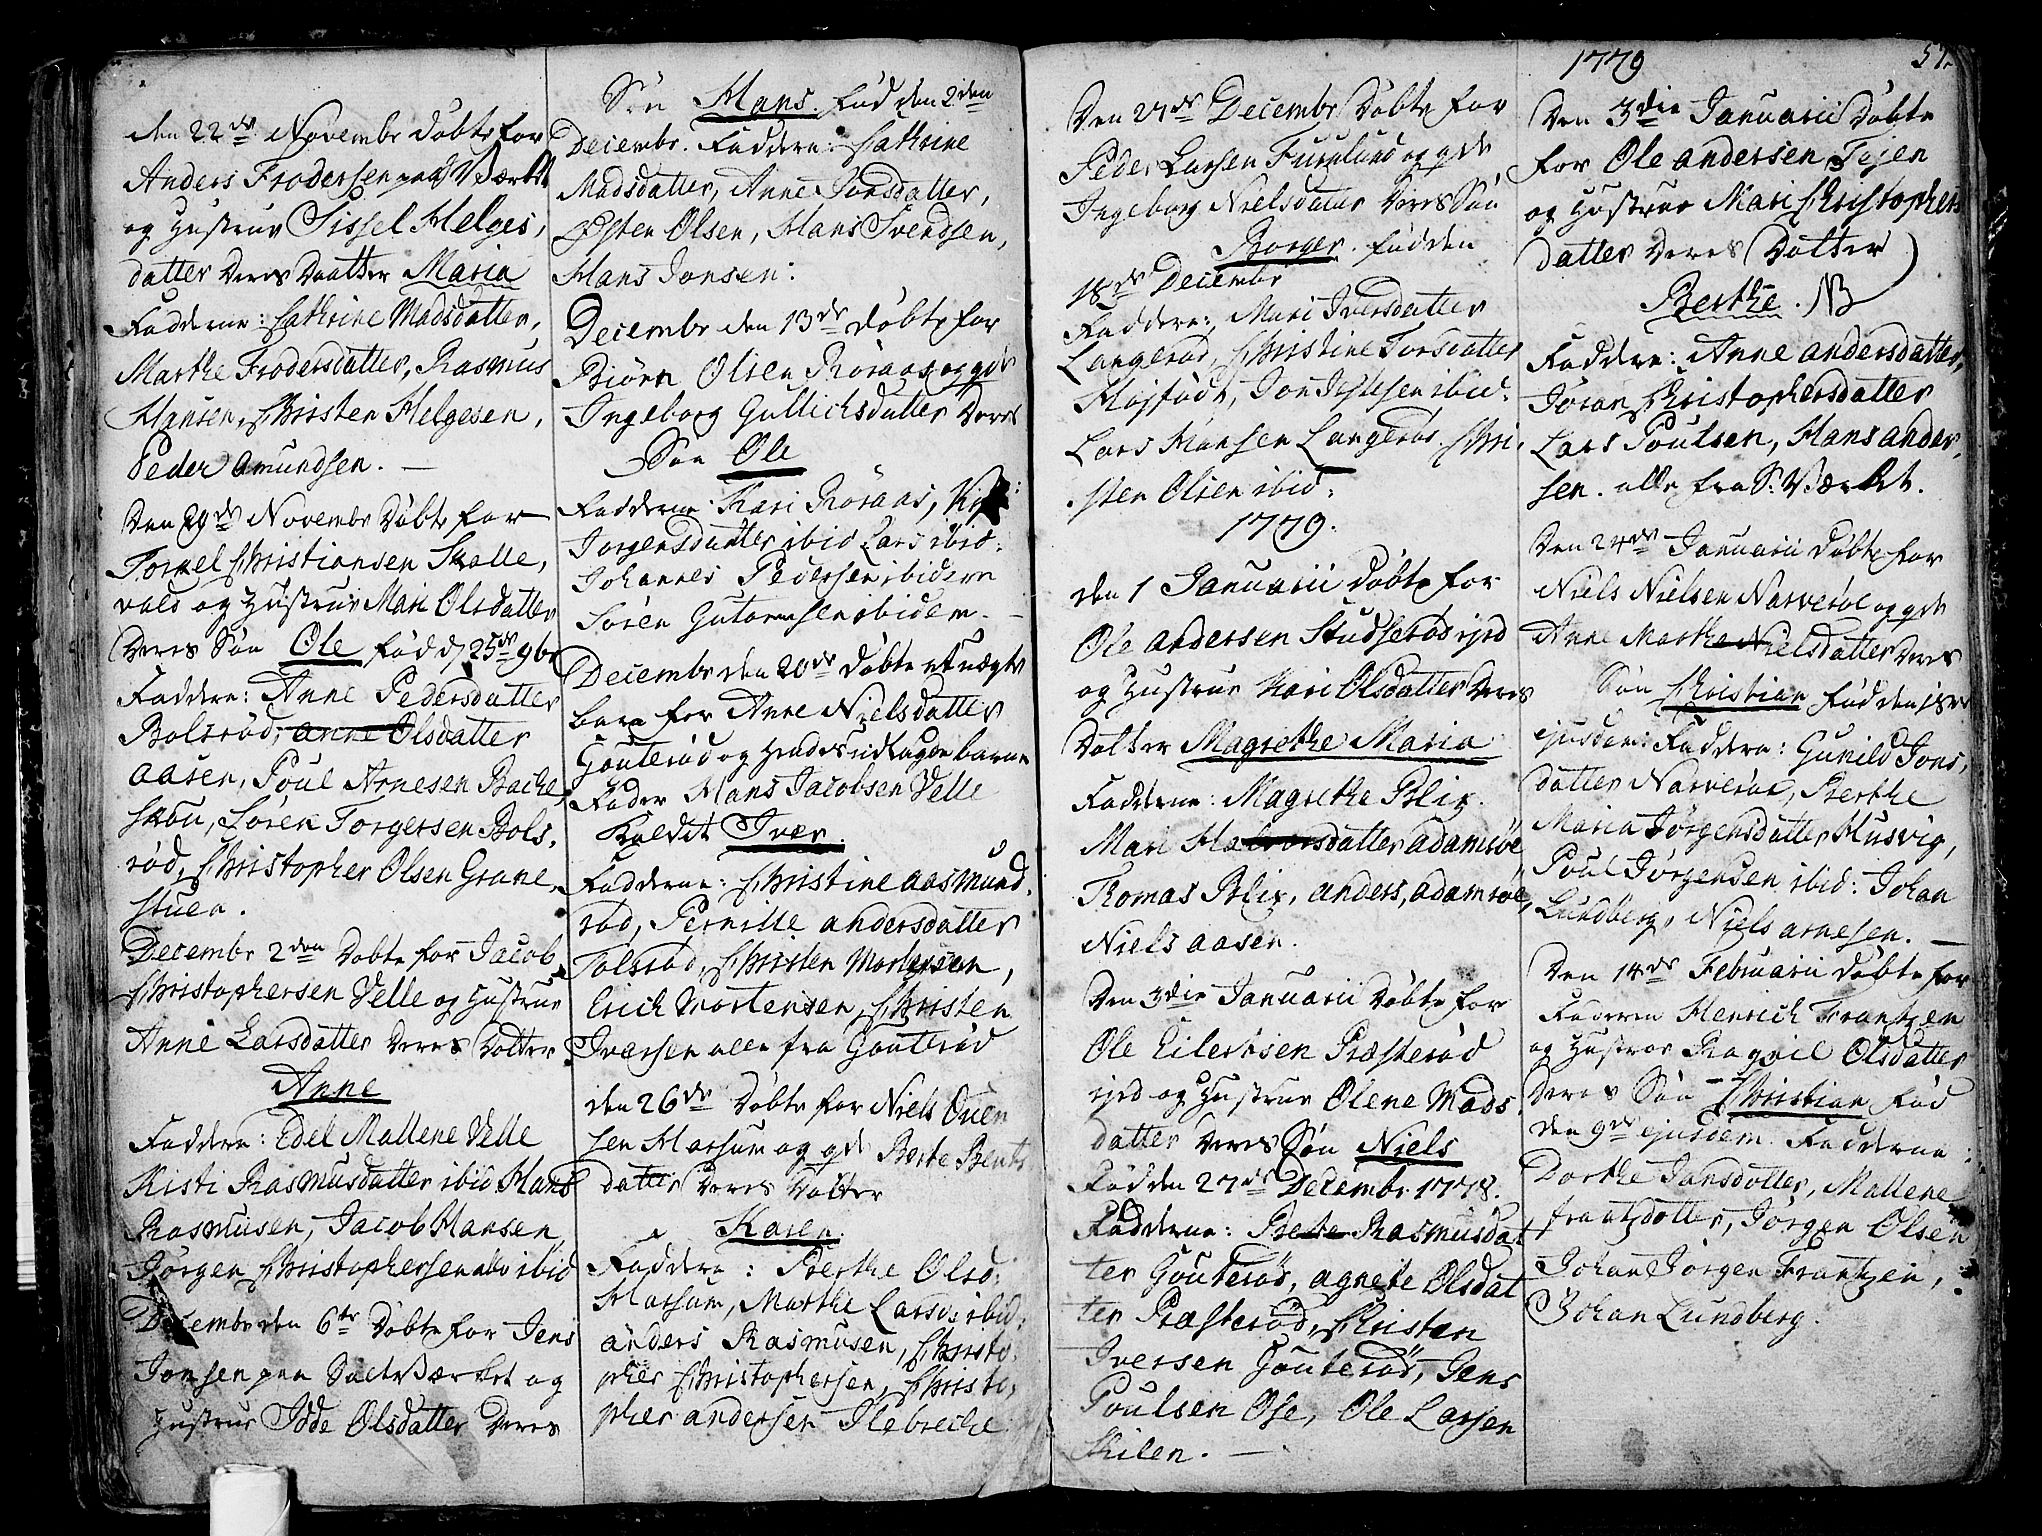 den 22de Novembr døbt for
Anders Frodersen paa Værket
og Hustrue Sissel Helges,
datter Deres Daatter Maria
Fadderne: Cathrine Madsdatter,
Marthe Frodersdatter, Rasmus
Hansen, Christen Helgesen,
Peder Amundsen. —
Den 29de Novembr Døbt for
Torkel Christiansen Skalle,
vald og Hustrue Mari Olsdatter
Deres Søn Ole fød d 25de 9br
Faddere: Anne Pedersdatter
Bolsrød, anne Olsdatter
Aasen, Poul Arnesen Bache,
skou, Søren Torgersen Bols,
rød, Christopher Olsen Grane,
stuen.
Decembr 2den Døbt for Jacob
Christophersen Velle og Hustrue
Anne Larsdatter Deres Dotter
Anne
Faddere: Edel Mallene Velle
Kisti Rasmusdatter ibid Hans
Rasmusen, Jacob Hansen,
Jørgen Christophersen alle ibid
Decembr den 6te Døbt for Jens
Jonsen paa Saltværket og
Hustrue Idde Olsdatter Deres
Søn Hans. Fød den 2den
Decembr. Faddere: Cathrine
Madsdatter, Anne Jonsdatter,
Østen Olsen, Hans Svendsen,
Hans Jonsen:
Decembr den 13de døbt for
Biørn Olsen Røraas og qde
Ingeborg Gullichsdatter Deres
Søn Ole
Fadderne: Kari Røraas,
Jørgensdatter ibid Lars ibid:
Johannes Pedersen ibidem
Søren Gutormsen ibidem. —
Decembr den 20de døbt et uægte
barn for Anne Nielsdatter
Gouterød og Hendes udlagde barne
Fader Hans Jacobsen Velle
Kaldet Iver.
Fadderne: Christine Aasmund,
rød, Pernille Andersdatter
Tolsrød, Christen Mortensen,
Erich Mortensen, Christen
Iversen alle fra Gouterød
den 26de Døbt for Niels Ouen
sen Harsum og qde Berte Bents
datter Deres Dotter
Karen.
Faddere: Berthe Olsd:
Harsum, Marthe Larsd: ibid:
Anders Rasmusen, Christo,
pher Christophersen, Christo,
pher Andersen Ilebreche
Den 27de Decembr Døbt for
Peder Larsen Furulund og qde
Ingeborg Nielsdatter Deres Søn
Borger. Fød den
18de Decembr
Faddere: Mari Iversdatter
Langerød, Christine Torsdatter
Højfødt, Jon ibid:
Lars Hansen Langerød. Chri,
sten Olsen ibid:
1779.
den 1 Januarii døbt for
Ole Andersen Studserød ijrd
og Hustrue Kari Olsdatter Deres
Dotter Magrethe Maria
Fadderne: Magrethe Blix.
Mari Halvorsdatter Adamrøe,
Thomas Blix, Anders, Adamrøe,
Niels Aasen.
Den 3die Januarii Døbt for
Ole Eilertsen Præsterød
ijrd og Hustrue Olene Mads
datter Deres Søn Niels
Fød den 27de Decembr 1778.
Fadderne: Berte Rasmusdat
ter Gouterød, Agnete Olsdat
ter Præsterød, Christen
Iversen Gouterød, Jens
Poulsen Ose, Ole Larsen
Kilen. —
1779
57.
Den 3die Januarii Døbt
for Ole Andersen Tejen
og Hustrue Mari Christophers
datter Deres Dotter
Berthe. NB
Faddere: Anne Andersdatter,
Joran Christophersdatter
Lars Poulsen, Hans Ander,
sen. alle fra S: Værket.
Den 24de Januarii døbt for
Niels Nielsen Narverøe og qde
Anne Marthe Nielsdatter Deres
Søn Christian Fød den 18de
ejusdem: Faddere: Gunild Jons,
datter Narverøe, Berthe
Maria Jørgensdatter Husvig,
Poul Jørgensen ibid: Johan
Lundberg, Niels Arnesen. —
Den 14de Februarii døbt for
Faderen Henrich Frantzen
og Hustroe Ragnil Olsdatter
Deres Søn Christian Fød
den 9de ejusdem. Fadderne:
Dorthe Jansdotter, Mallene
frantzdotter, Jørgen Olsen
Johan Jørgen Frantzen,
Johan Lundberg.